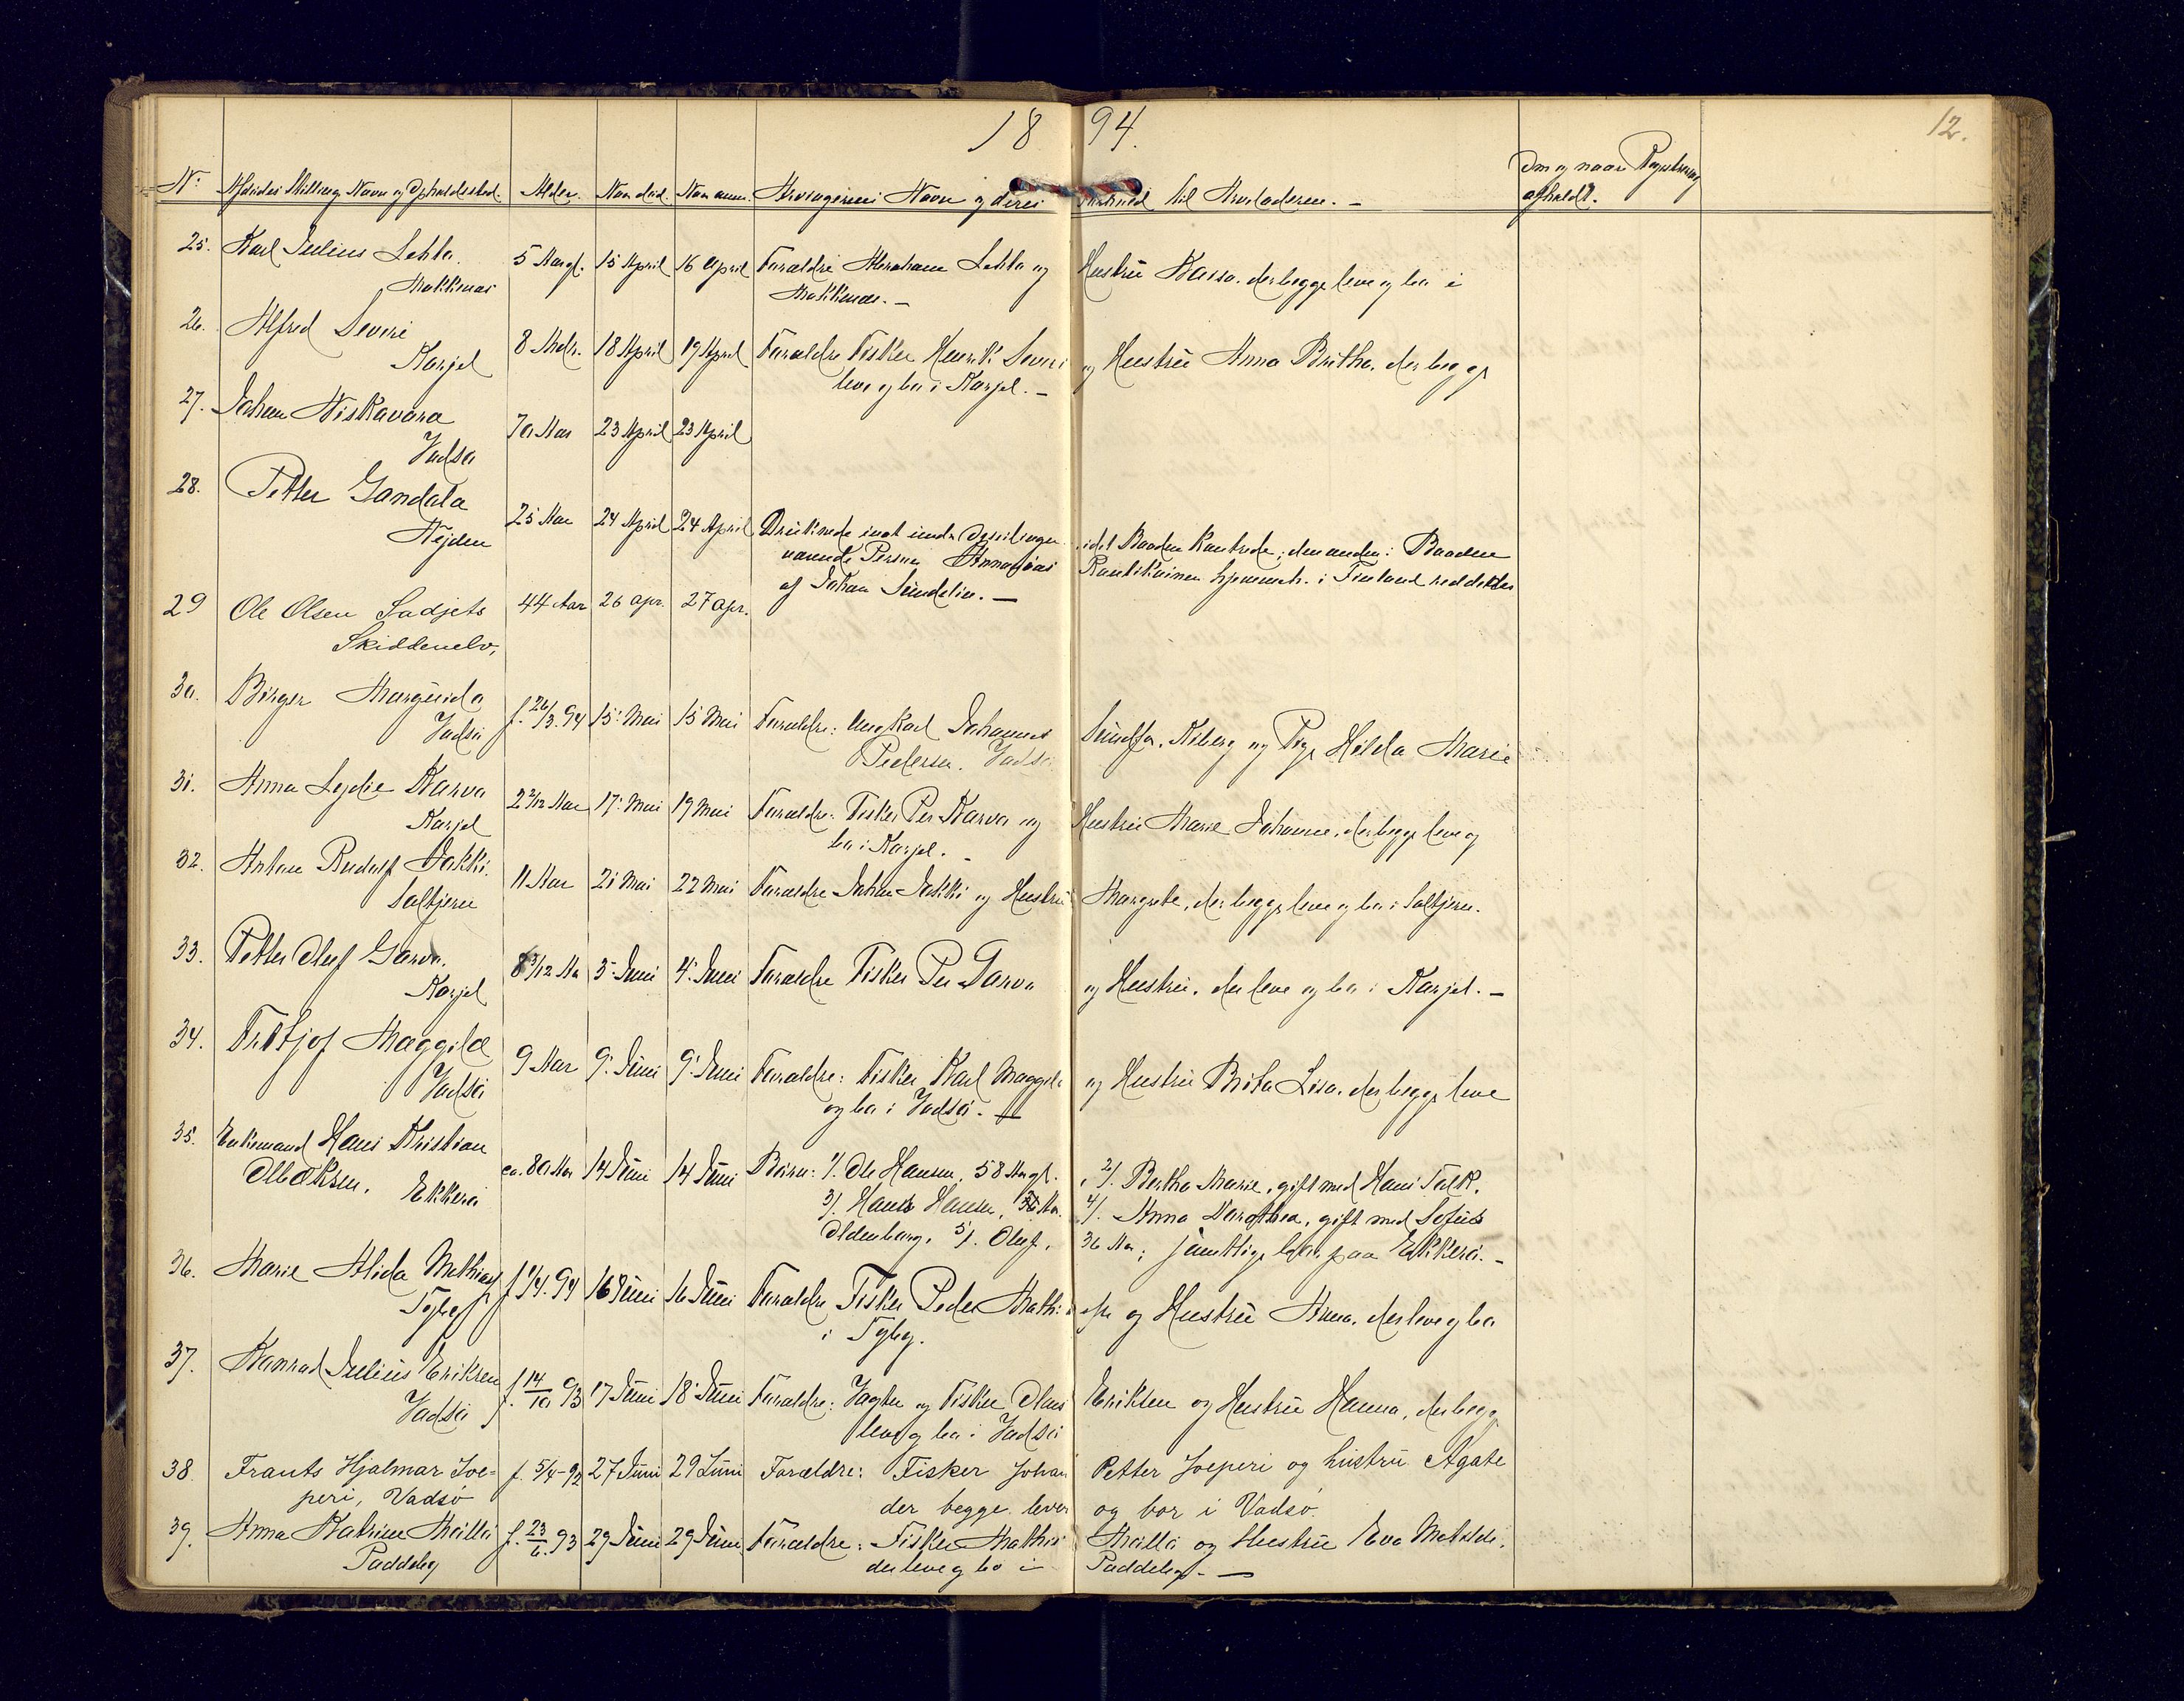 1894.
12.
No. Afdødes Stilling, Navn og Opholdssted. Alder. Naar død. Naar anm. Arvingernes Navn og deres til Arveladeren. - Om og naar Registrering afholdt.
25. Karl Julius Lehto. 5 Aar gl. 15 April 16 April Forældre Abraham Lehto og Hustru Kaisa, der begge leve og bo i
26. Alfred Severi 8 Mdr. 18 April 19 April Forældre Fisker Henrik Severi og Hustru Anna Britha, der begge
Karjel leve og bo i Karjel. -
27. Johan Niskavara 70 Aar 23 April 23 April
Vadsø
28. Petter Gandola 25 Aar 24 April 24 April Druknede idet Baaden kantrede; den anden i Baaden
Nejden værende Person hjemmeh. i Finland reddedes
af Johan Sundelin. -
29 Ole Olsen Sadjets 44 Aar 26 Apr. 27 Apr.
Skiddenelv,
30. Birger f. 15' Mai 15 Mai Forældre: Ungkarl Johannes Kiberg og Pige Hilda Marie
Vadsø Pedersen. Vadsø
31. Anna Lydie Karva 2 2/12 Aar 17' Mai 19 Mai Forældre: Fisker Per Karva og Hustru Marie Johanne, der begge leve og
Karjel bo i Karjel. -
32. Anton Rudolf Jokki. 11 Aar 21 Mai 22 Mai Forældre Johan Jokki og Hustru Margrete, der begge leve og bo i Saltjern.
Saltjern
33. Petter Oluf Garva. 8 3/12 Aar 3' Juni 4' Juni Forældre Fisker Per Garva og Hustru, der leve og bo i Karjel. -
Karjel
34. Fritjof Maggila 9 Aar 9' Juni 9' Juni Forældre: Fisker Karl Maggila og Hustru Brita Lisa, der begge leve
Vadsø og bo i Vadsø. -
35. Enkemand Hans Kristian ca. 80 Aar 14 Juni 14 Juni Børn: 1/. Ole Hansen, 58 Aar gl. 2/. Bertha Marie, gift med Hans Falk.
Ekkerø 3/. Hans Hansen, 4/. Anna Dorothea, gift med Sofus
Oldenborg, 5/. Oluf, 36 Aar; samtlige bo paa Ekkerø. -
36. Marie Alida Mathias f 1/4. 94 16 Juni 16 Juni Forældre Fisker Peder Mathi- og Hustru Anna, der leve og bo
37. Konrad Julius Eriksen f. 14/10 93 17 Juni 18' Juni Forældre: og Fisker Olaus Eriksen og Hustru Hanna, der begge
Vadsø leve og bo i Vadsø
38. Frants Hjalmar Joe= f. 5/4-92 27 Juni 29 Juni Forældre: Fisker Johan Petter Joeperi og hustru Agate
peri, Vadsø der begge lever og bor i Vadsø.
39. Anna Katrine Maitta f. 23/6. 93 29 Juni 29 Juni Forældre: Fisker Mathis Maitta og Hustru Eva Matilde,
Paddeby der leve og bo i Paddeby. -